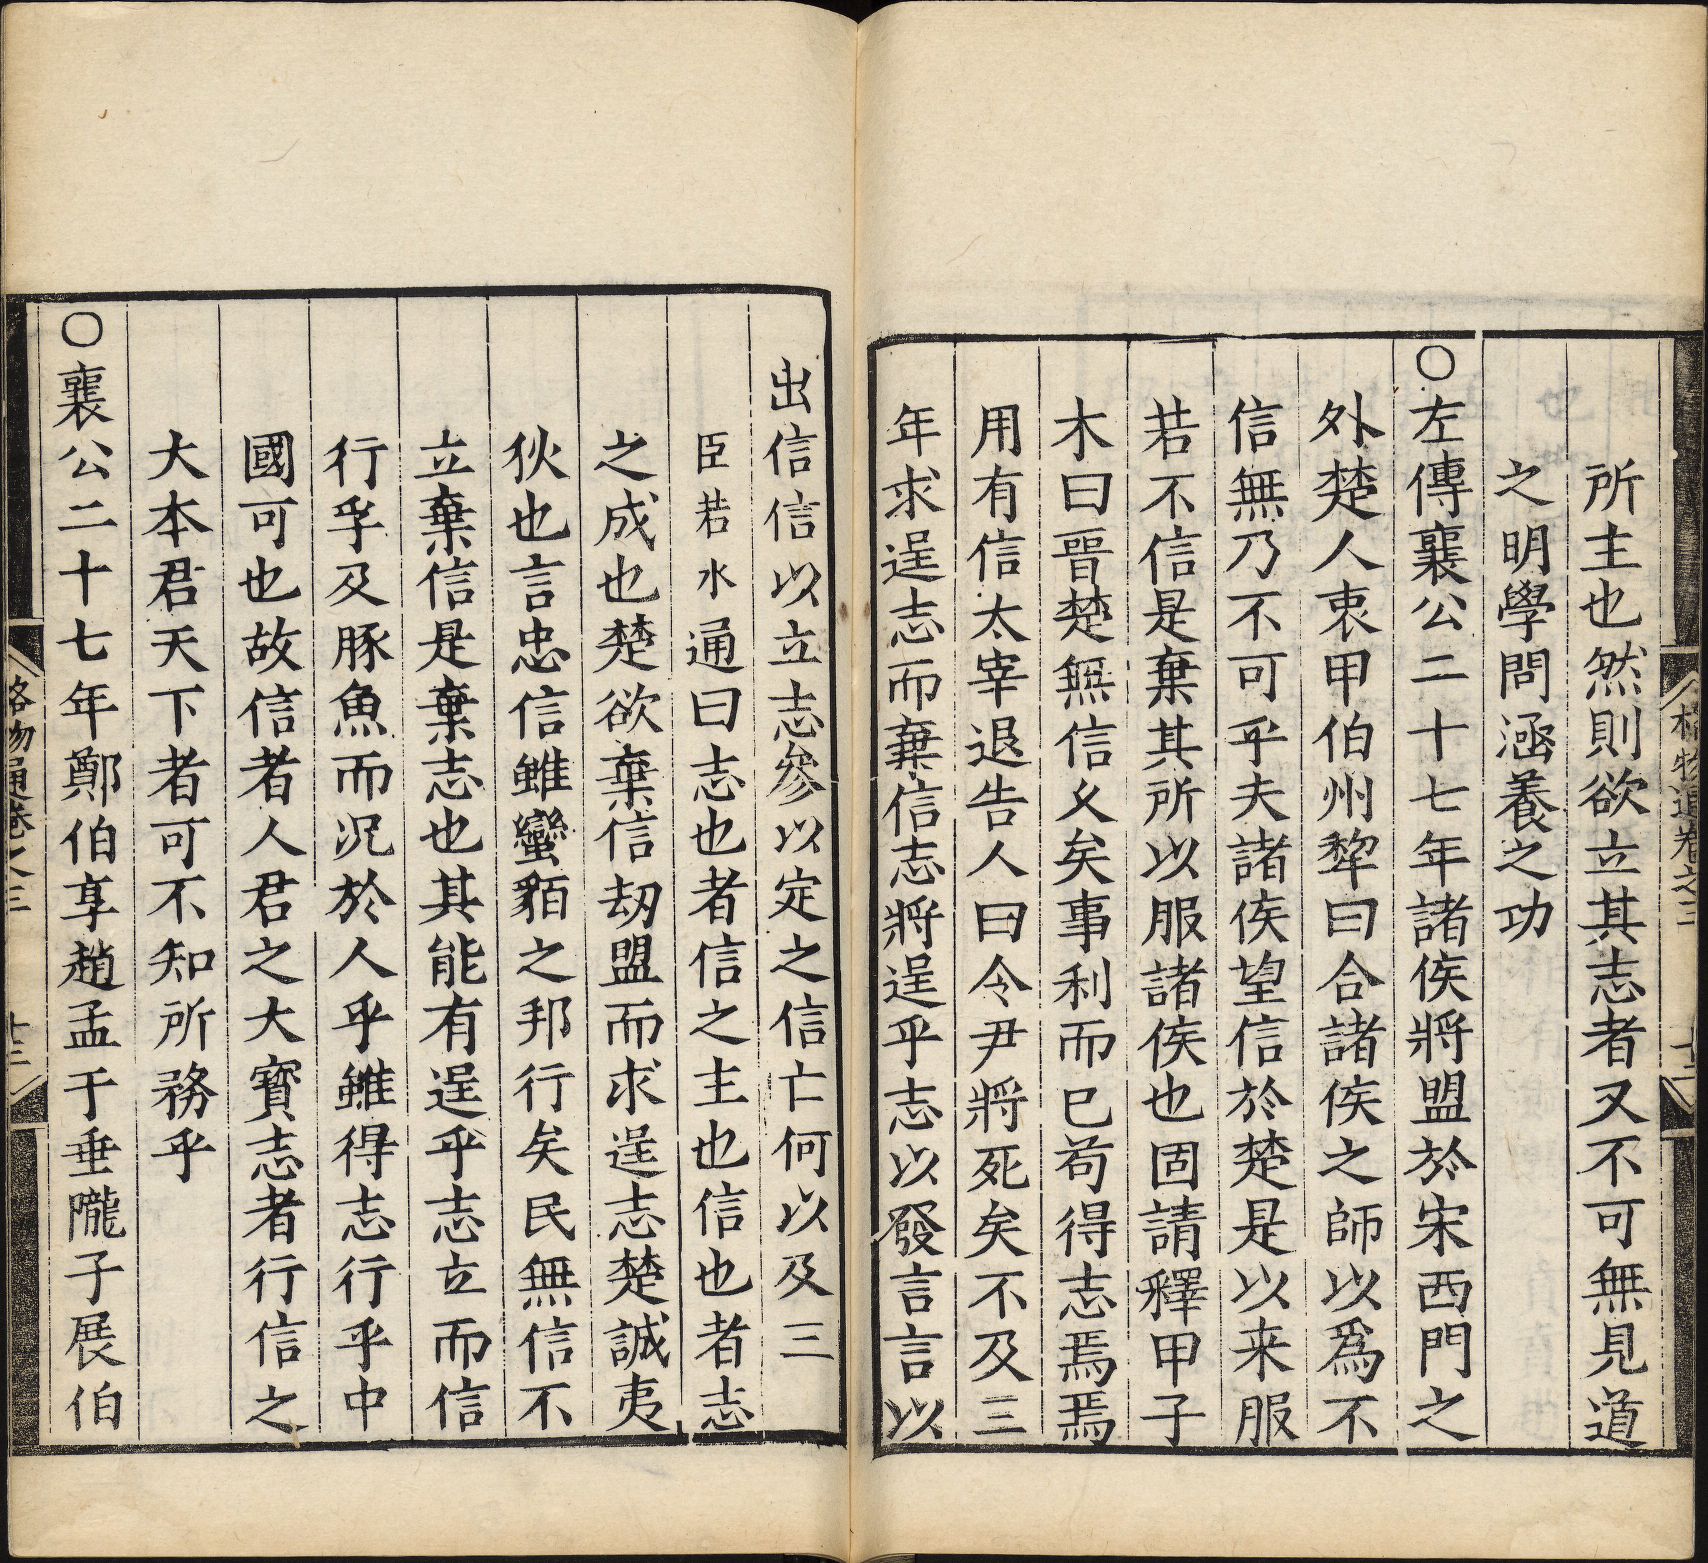 所主也然則欲立其志者又不可無見道
之明學問涵養之功
○左傳襄公二十七年諸侯將盟於宋西門之
外楚人衷甲伯州犂曰合諸侯之師以爲不
信無乃不可乎夫諸侯望信於楚是以来服
若不信是棄其所以服諸侯也固請釋甲子
木曰晉楚無信乆矣事利而已苟得志焉焉
用有信太宰退告人曰令尹將死矣不及三
年求逞志而棄信志將逞乎志以發言言以
格物通卷之三
十二
出信信以立志參以定之信亡何以及三
臣若水通曰志也者信之主也信也者志
之成也楚欲棄信刼盟而求逞志楚誠夷
狄也言忠信雖蠻貊之邦行矣民無信不
立棄信是棄志也其能有逞乎志立而信
行孚及豚魚而况於人乎雖得志行乎中
國可也故信者人君之大寳志者行信之
大本君天下者可不知所務乎
○襄公二十七年鄭伯享趙孟于垂隴子展伯
格物通卷之三
十三